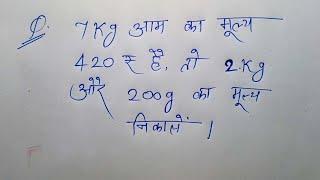 Q. 7Kg आम का मूल्य
420 ₹ है, तो 2.Kg
और 200g का मूल्य
निकालें।